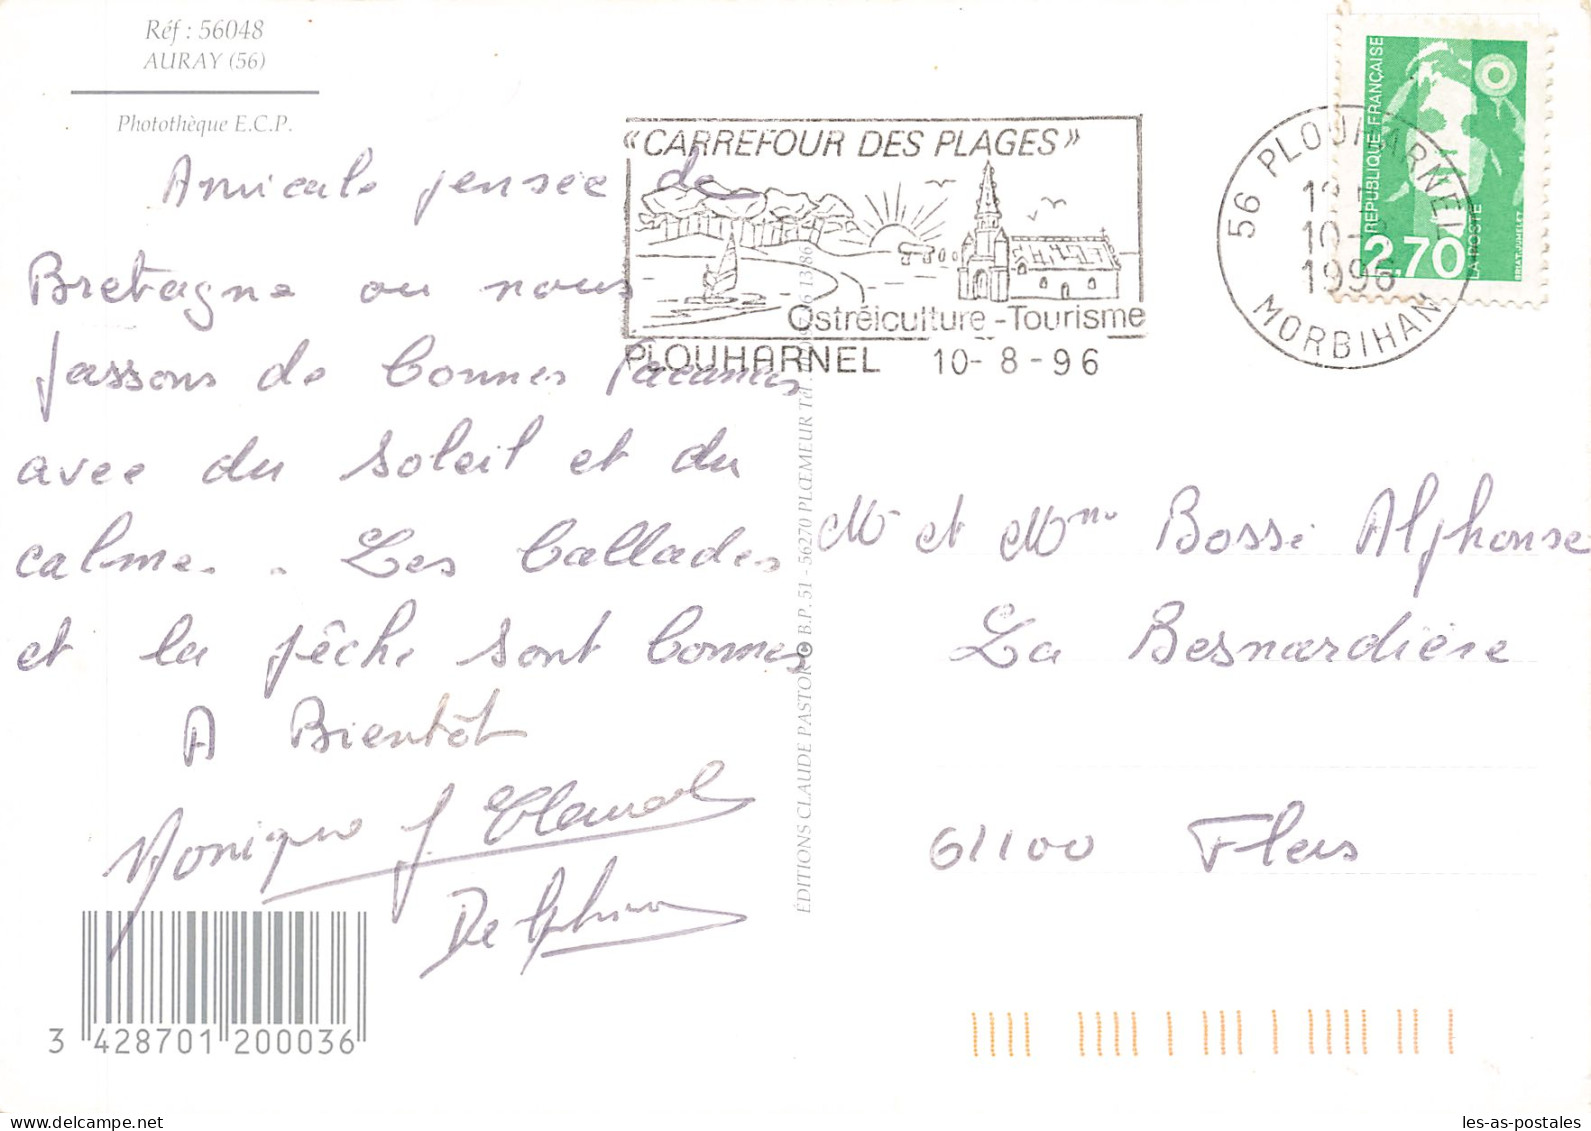 Réf : 56048
AURAY (56)
Photothèque E.C.P.
Amicale pensée de
Bretagne ou nous
passons de bonnes vacances
avec du soleil et du
calme. Les ballades
et la pêche sont bonnes
A Bientôt
Monique J
Delphine
3 428701 200036
ÉDITIONS CLAUDE PASTOR B.P. 51 - 56270 PLŒMEUR Tél.
« CARREFOUR DES PLAGES »
Ostréiculture - Tourisme
PLOUHARNEL 10 - 8 - 96
56 PLOUHARNEL
10-
1996
MORBIHAN
RÉPUBLIQUE FRANÇAISE
2,70
LA POSTE
BRIAT-JUMELET
Mr et Mme Bossé Alphonse
La Besnardière
61100 Flers
les-as-postales